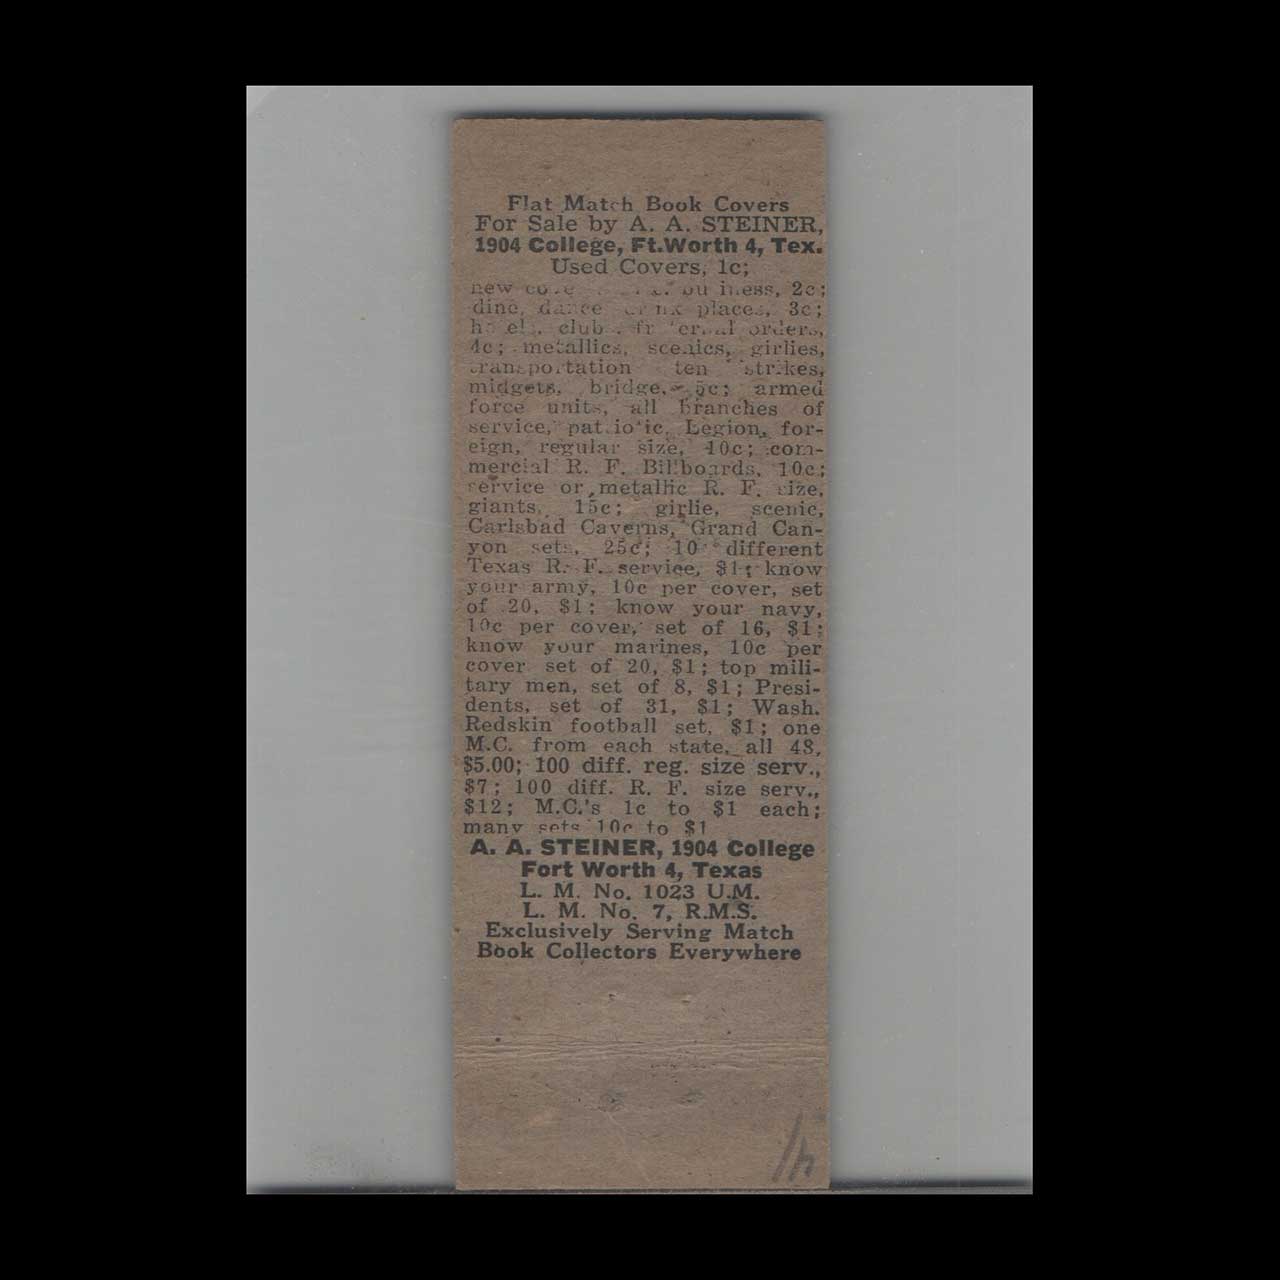 Flat Match Book Covers
For Sale by A. A. STEINER,
1904 College, Ft.Worth 4, Tex.
Used Covers, 1c;
new 2c;
dine, dance places, 3c;
orders,
4c; metallics, scenics, girlies,
transportation ten strikes,
midgets, bridge, 5c; armed
force units, all branches of
service, patriotic, Legion, for-
eign, regular size, 10c; com-
mercial R. F. Billboards, 10c;
service or metallic R. F. size,
giants, 15c; girlie, scenic,
Carlsbad Caverns, Grand Can-
yon sets, 25c; 10 different
Texas R. F. service, $1; know
your army, 10c per cover, set
of 20, $1; know your navy,
10c per cover, set of 16, $1;
know your marines, 10c per
cover set of 20, $1; top mili-
tary men, set of 8, $1; Presi-
dents, set of 31, $1; Wash.
Redskin football set, $1; one
M.C. from each state, all 48,
$5.00; 100 diff. reg. size serv.,
$7; 100 diff. R. F. size serv.,
$12; M.C.'s 1c to $1 each;
many sets 10c to $1
A. A. STEINER, 1904 College
Fort Worth 4, Texas
L. M. No. 1023 U.M.
L. M. No. 7, R.M.S.
Exclusively Serving Match
Book Collectors Everywhere